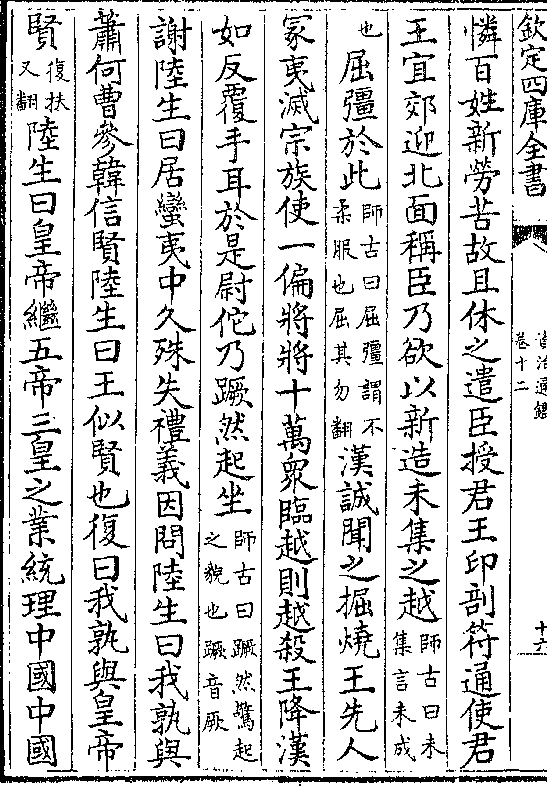 欽定四庫全書
資治通鑑
卷十二
十六
憐百姓新勞苦故且休之遣臣授君王印剖符通使君
王宜郊迎北面稱臣乃欲以新造未集之越師古曰未集言未成
也屈彊於此師古曰屈彊謂不柔服也屈其勿翻漢誠聞之掘燒王先人
冢夷滅宗族使一偏將將十萬衆臨越則越殺王降漢
如反覆手耳於是尉佗乃蹶然起坐師古曰蹶然驚起之貌也蹶音厥
謝陸生曰居蠻夷中久殊失禮義因問陸生曰我孰與
蕭何曹參韓信賢陸生曰王似賢也復曰我孰與皇帝
賢復扶又翻陸生曰皇帝繼五帝三皇之業統理中國中國